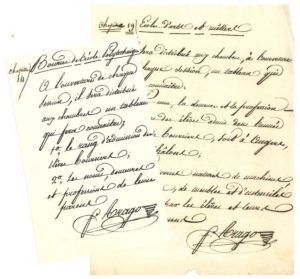 Chapitre 14
Bourses de l'école Polytechnique
A l'ouverture de chaque
session, il sera distribué
aux chambres un tableau
qui fera connaître:
1º le rang d'admission de
élève Boursier;
2º les noms, demeures
et profession de leurs
parents
F. Arago
Chapitre 19
Ecoles d'arts et métiers
sera distribué aux chambres, à l'ouverture
chaque session, un tableau qui
connaître:
la demeure et la profession
des élèves
Boursiers, soit à Angers,
Châlons;
nature de machines
de meubles et d'ustensiles
par les élèves et leurs
F. Arago